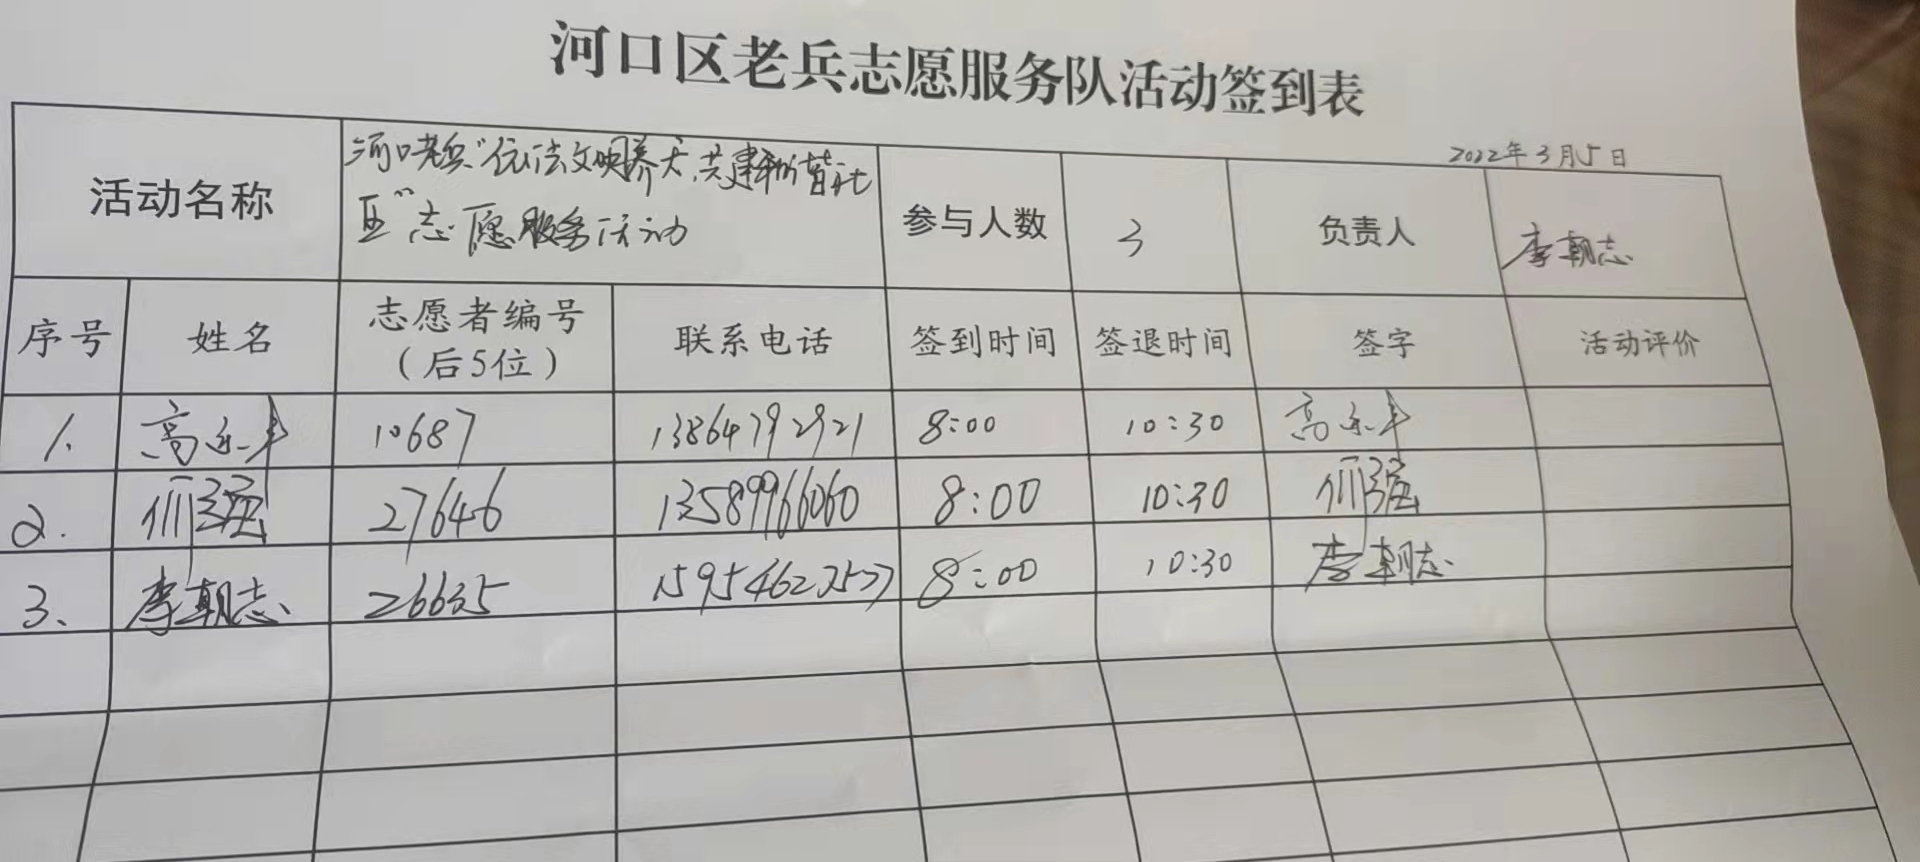 河口区老兵志愿服务队活动签到表
2022年3月5日
活动名称 河口老兵“依法文明养犬,共建和谐社区”志愿服务活动 参与人数 3 负责人 李朝志
序号 姓名 志愿者编号（后5位） 联系电话 签到时间 签退时间 签字 活动评价
1. 高 10687 13864792921 8:00 10:30 高
2. 强 27646 13589966060 8:00 10:30 强
3、 李朝志 26635 8:00 10:30 李朝志